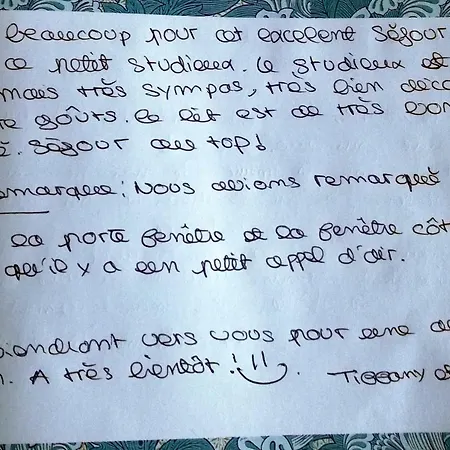 beaucoup pour cet excelent séjour
ce petit studieux. Le studieux est
mais très sympas, très bien déco
re goûts. Le lit est de très bon
é. Séjour au top!
emarque: Nous avions remarqué
la porte fenêtre et la fenêtre côt
qu'il y a un petit appel d'air.
viendront vers vous pour une
. A très bientôt !!!
Tiffany